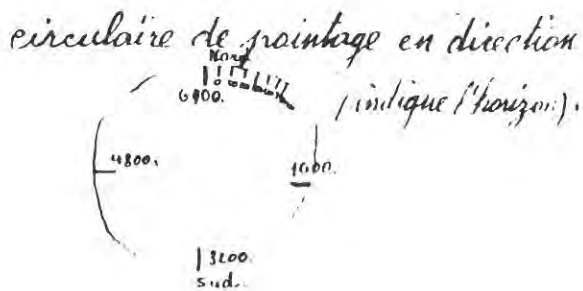 circulaire de pointage en direction
Nord
6400.
(indique l'horizon).
4800.
1600.
3200.
Sud.